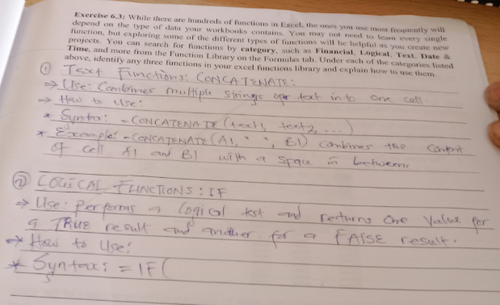 Exercise 6.3: While there are hundreds of functions in Excel, the ones you use most frequently will
depend on the type of data your workbooks contains. You may not need to learn every single
function, but exploring some of the different types of functions will be helpful as you create new
projects. You can search for functions by category, such as Financial, Logical, Text, Date &
Time, and more from the Function Library on the Formulas tab. Under each of the categories listed
above, identify any three functions in your excel functions library and explain how to use them.
① Text Functions: CONCATENATE:
→ Use: Combines multiple strings of text into one cell.
→ How to Use:
* Syntax: =CONCATENATE(text1, text2, ...)
* Example: =CONCATENATE(A1, " ", B1) combines the content
of cell A1 and B1 with a space in between.
② LOGICAL FUNCTIONS: IF
→ Use: Performs a logical test and returns one value for
a TRUE result and another for a FALSE result.
→ How to Use:
* Syntax: =IF(